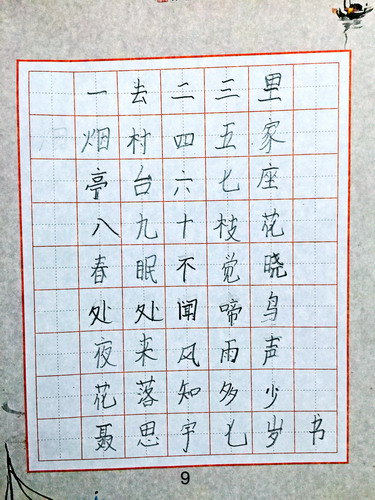 一去二三里
烟村四五家
亭台六七座
八九十枝花
春眠不觉晓
处处闻啼鸟
夜来风雨声
花落知多少
聂思宇七岁书
9